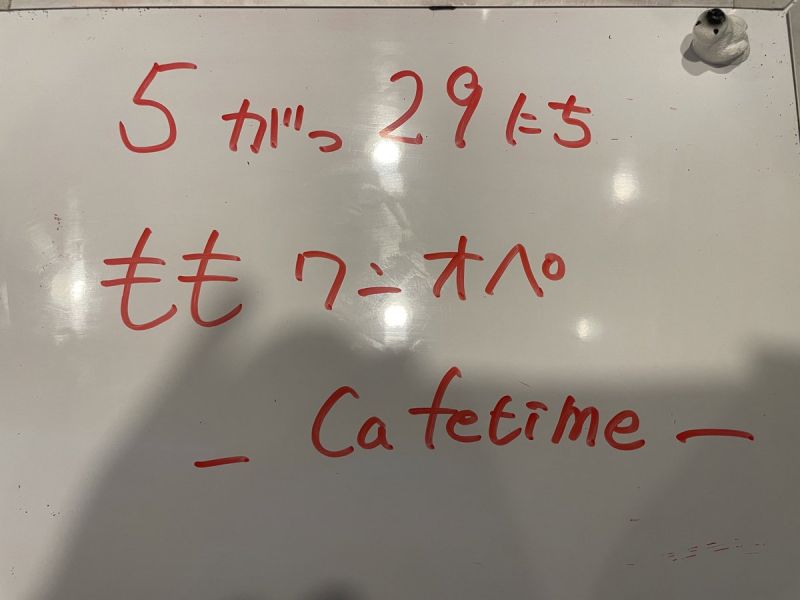 5がっ29にち
ももワンオペ
- Cafetime -